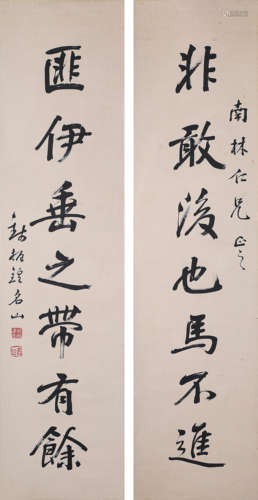 非敢後也馬不進
南林仁兄正之
匪伊垂之帶有餘
錢振鍠名山